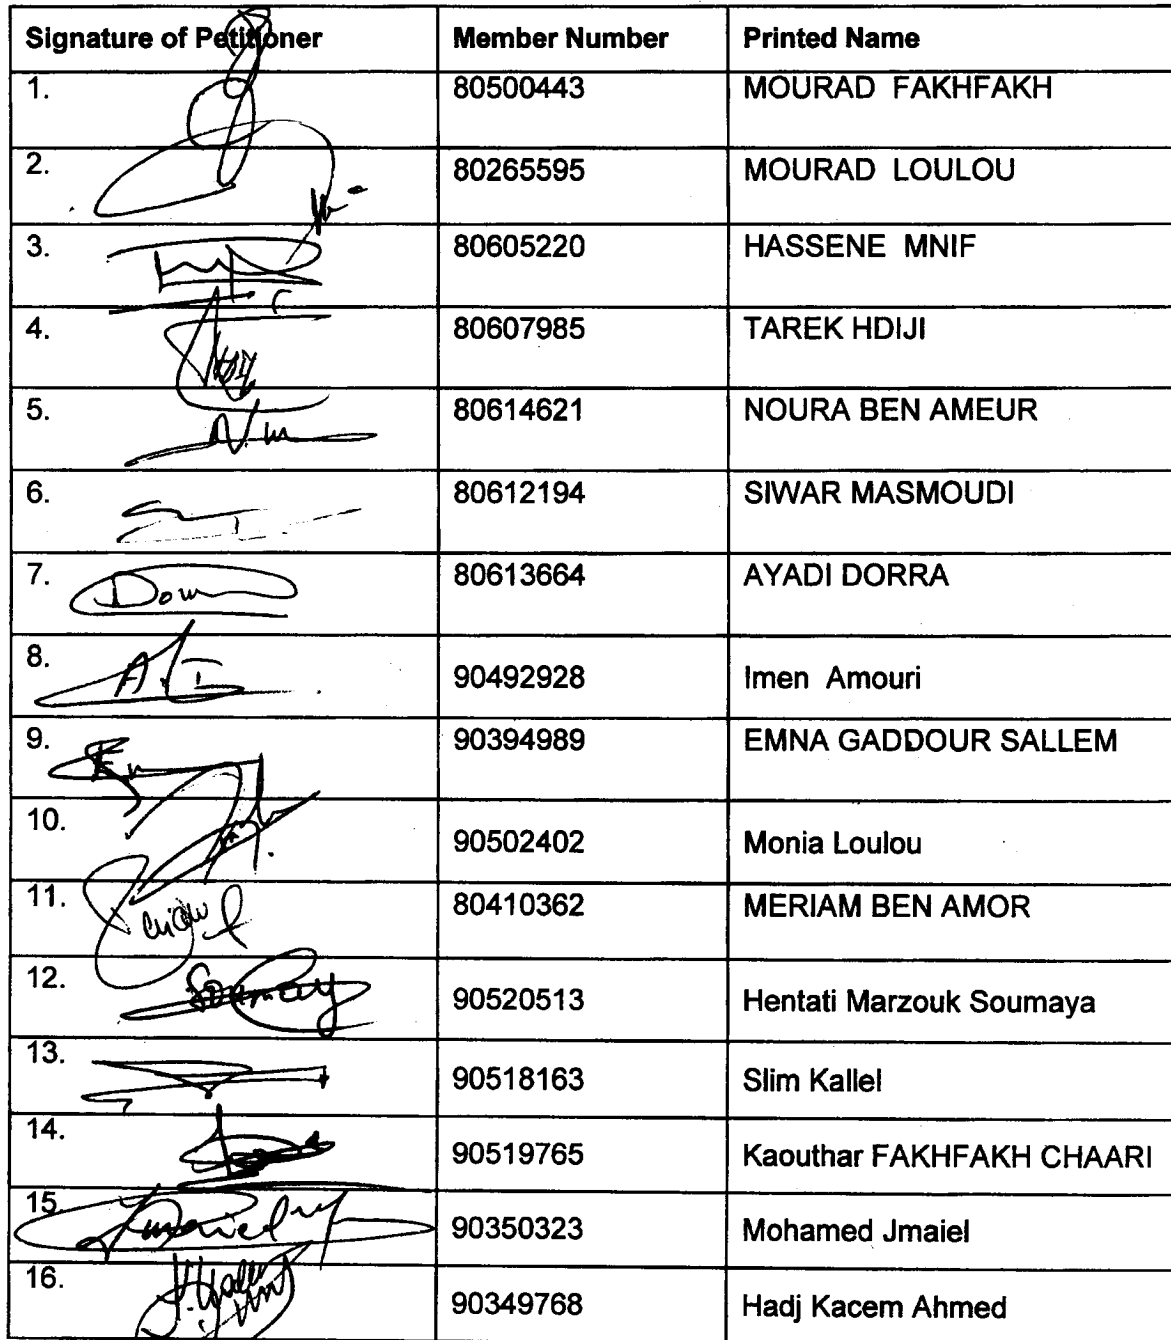 Signature of Petitioner Member Number Printed Name
1. 80500443 MOURAD FAKHFAKH
2. 80265595 MOURAD LOULOU
3. 80605220 HASSENE MNIF
4. 80607985 TAREK HDIJI
5. 80614621 NOURA BEN AMEUR
6. 80612194 SIWAR MASMOUDI
7. 80613664 AYADI DORRA
8. A.I 90492928 Imen Amouri
9. 90394989 EMNA GADDOUR SALLEM
10. 90502402 Monia Loulou
11. 80410362 MERIAM BEN AMOR
12. 90520513 Hentati Marzouk Soumaya
13. 90518163 Slim Kallel
14. 90519765 Kaouthar FAKHFAKH CHAARI
15. 90350323 Mohamed Jmaiel
16. 90349768 Hadj Kacem Ahmed